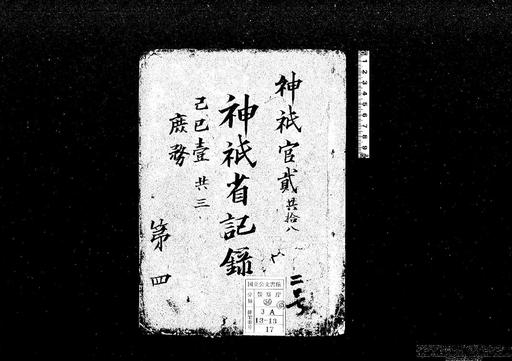 神祇官貳 共拾八
神祇省記録
己巳壹 共三
庶務
第四
二号
国立公文書館
分類
3A
13-13
17
1 2 3 4 5 6 7 8 9